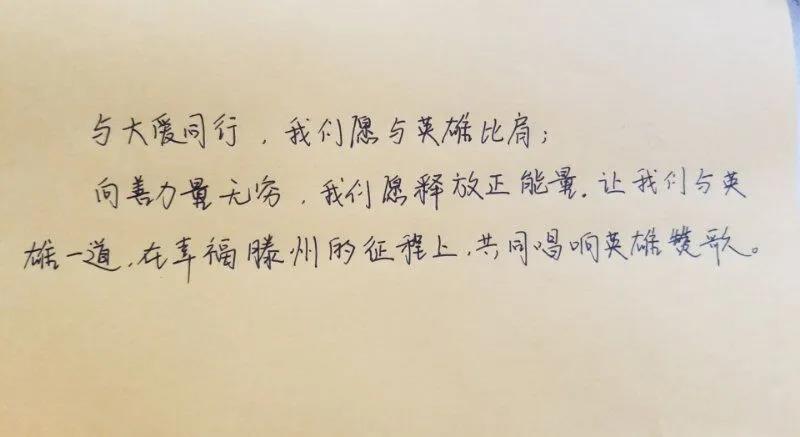 与大爱同行，我们愿与英雄比肩；
向善力量无穷，我们愿释放正能量。让我们与英
雄一道，在幸福滕州的征程上，共同唱响英雄赞歌。